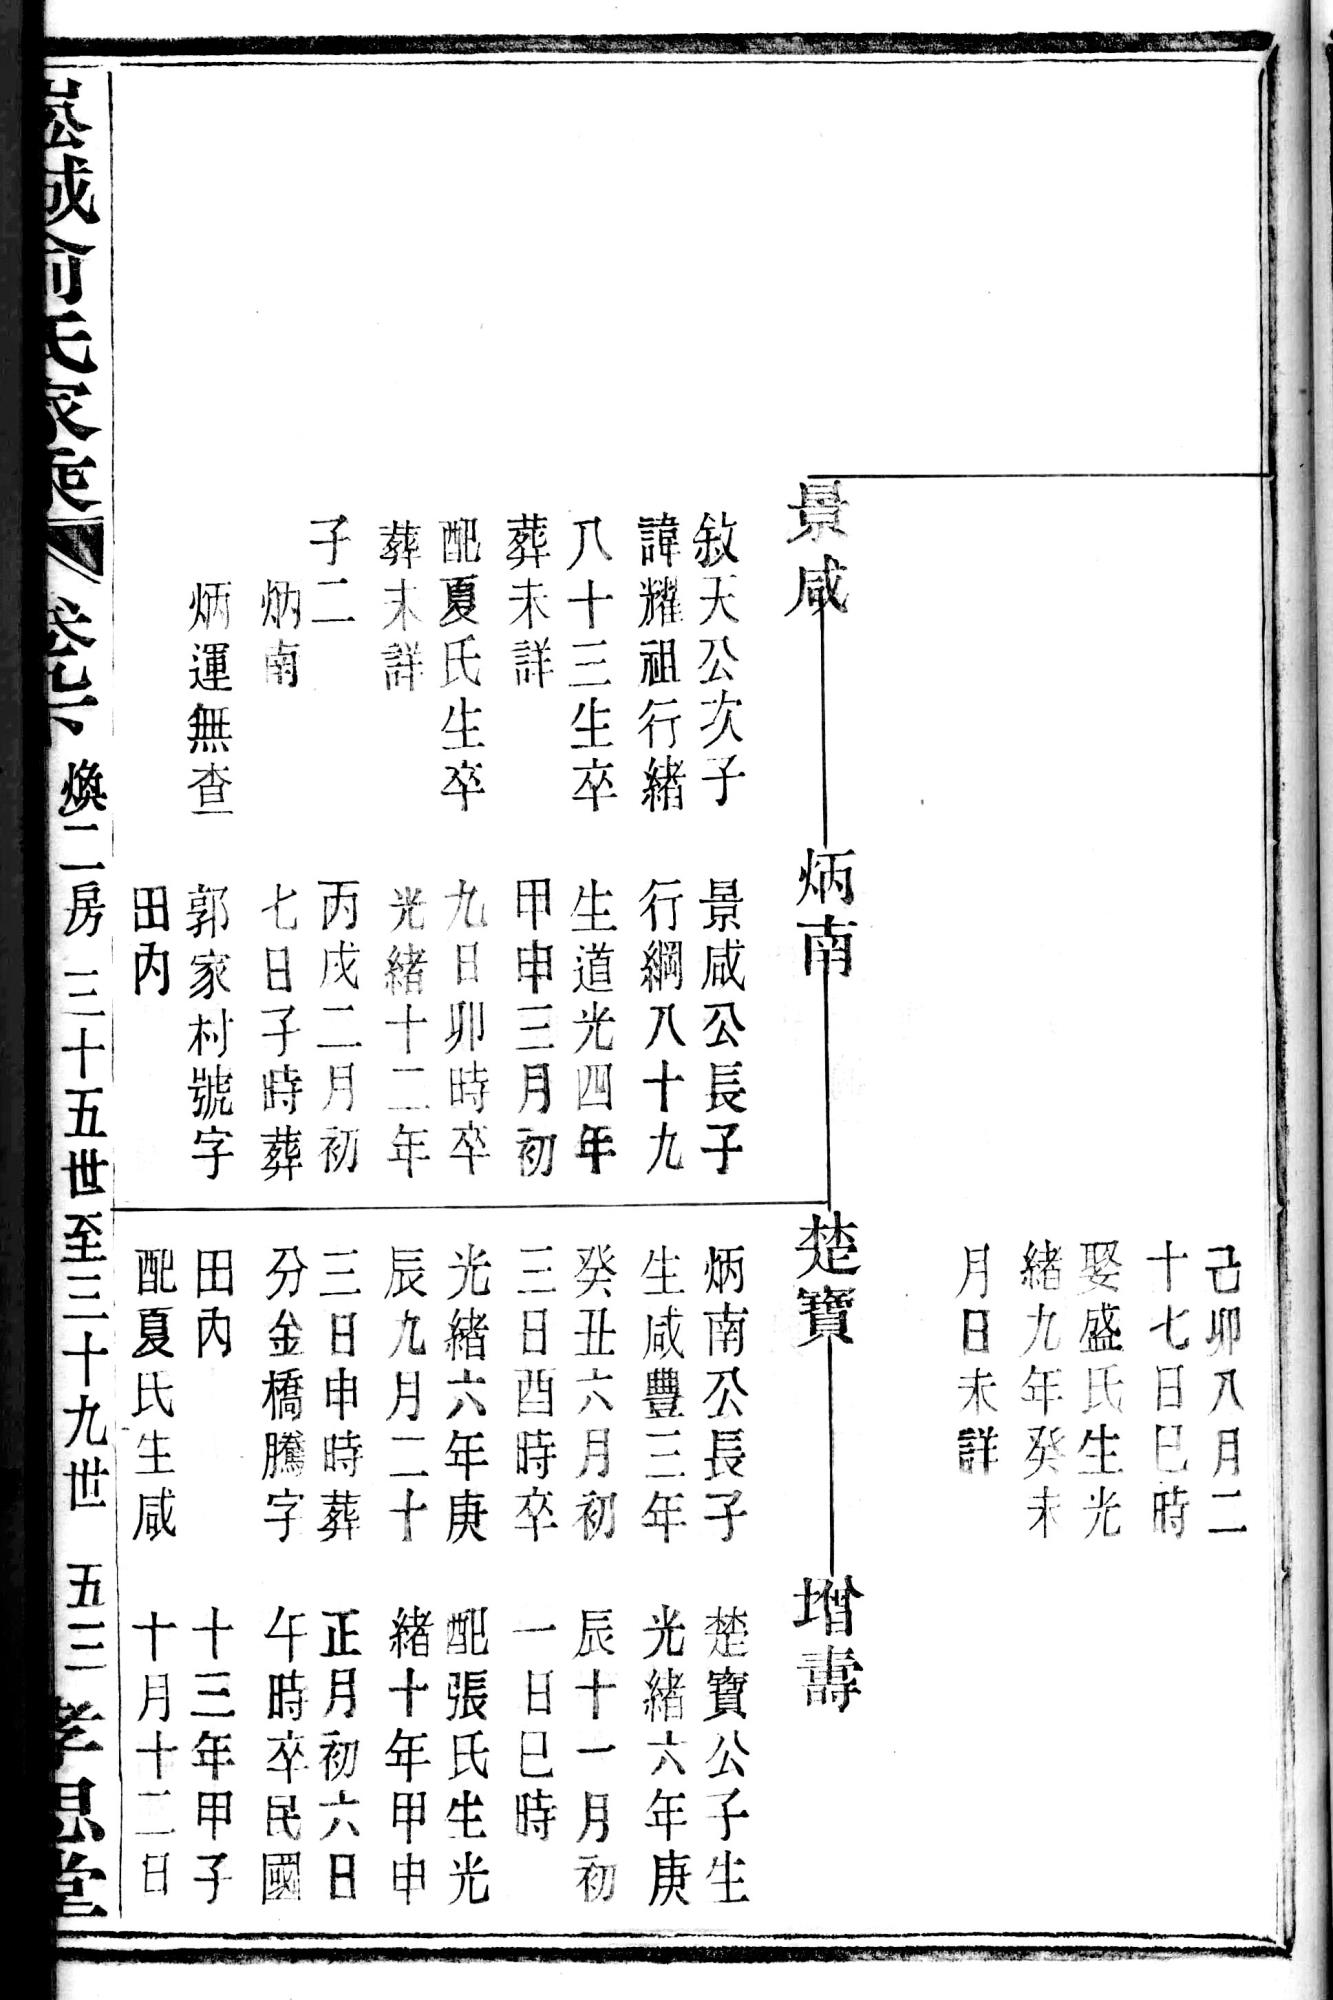 己卯八月二
十七日巳時
娶盛氏生光
緒九年癸未
月日未詳
景咸
敘天公次子
諱耀祖行緒
八十三生卒
葬未詳
配夏氏生卒
葬未詳
子二
炳南
炳運無查
炳南
景咸公長子
行綱八十九
生道光四年
甲申三月初
九日卯時卒
光緒十二年
丙戌二月初
七日子時葬
郭家村號字
田內
楚寶
炳南公長子
生咸豐三年
癸丑六月初
三日酉時卒
光緒六年庚
辰九月二十
三日申時葬
分金橋騰字
田內
配夏氏生咸
增壽
楚寶公子生
光緒六年庚
辰十一月初
一日巳時
配張氏生光
緒十年甲申
正月初六日
午時卒民國
十三年甲子
十月十二日
崧城俞氏家乘
卷九下
煥二房
三十五世至三十九世
五三
孝思堂